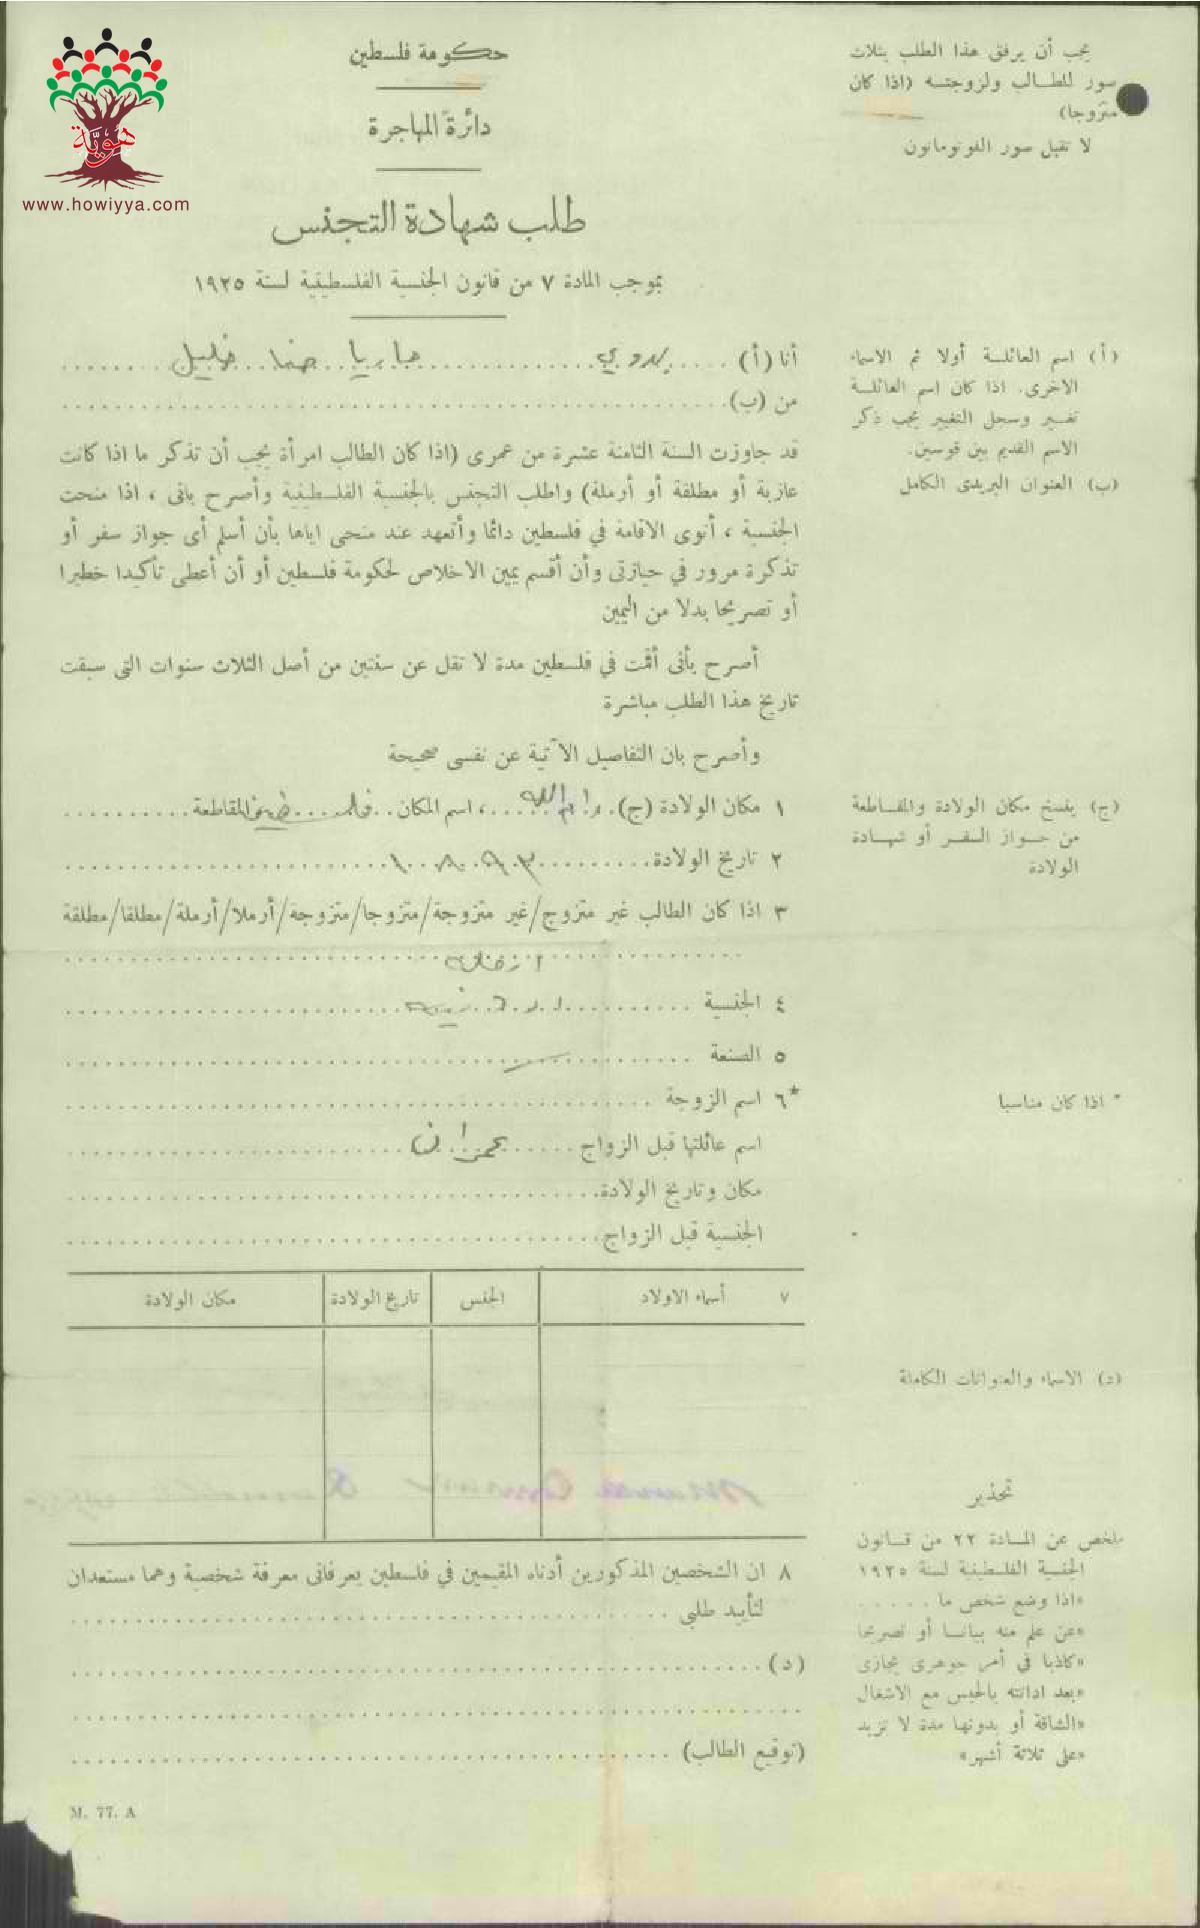 هوية
www.howiyya.com
حكومة فلسطين
دائرة المهاجرة
طلب شهادة التجنس
بموجب المادة ٧ من قانون الجنسية الفلسطينية لسنة ١٩٢٥
يجب أن يرفق هذا الطلب بثلاث
صور للطالب ولزوجته (اذا كان
متزوجا)
لا تقبل صور الفوتوماتون
أنا (أ) ماريا حنا خليل
(أ) اسم العائلة أولا ثم الاسماء
الاخرى. اذا كان اسم العائلة
تغير وسجل التغيير يجب ذكر
الاسم القديم بين قوسين.
(ب) العنوان البريدى الكامل
من (ب)
قد جاوزت السنة الثامنة عشرة من عمرى (اذا كان الطالب امرأة يجب أن تذكر ما اذا كانت
عازبة أو مطلقة أو أرملة) واطلب التجنس بالجنسية الفلسطينية وأصرح بانى ، اذا منحت
الجنسية ، أنوى الاقامة في فلسطين دائما وأتعهد عند منحى اياها بأن أسلم أى جواز سفر أو
تذكرة مرور في حيازتى وأن أقسم يمين الاخلاص لحكومة فلسطين أو أن أعطى تأكيدا خطيرا
أو تصريحا بدلا من اليمين
أصرح بأنى أقمت في فلسطين مدة لا تقل عن سنتين من أصل الثلاث سنوات التى سبقت
تاريخ هذا الطلب مباشرة
وأصرح بان التفاصيل الآتية عن نفسى صحيحة
١ مكان الولادة (ج) رام الله ، اسم المكان المقاطعة
(ج) ينسخ مكان الولادة والمقاطعة
من جواز السفر أو شهادة
الولادة
٢ تاريخ الولادة
٣ اذا كان الطالب غير متزوج/غير متزوجة/متزوجا/متزوجة/أرملا/أرملة/مطلقا/مطلقة
٤ الجنسية
٥ الصنعة
*٦ اسم الزوجة
* اذا كان مناسبا
اسم عائلتها قبل الزواج
مكان وتاريخ الولادة
الجنسية قبل الزواج
٧ أسماء الاولاد الجنس تاريخ الولادة مكان الولادة
(د) الاسماء والعنوانات الكاملة
تحذير
ملخص عن المادة ٢٢ من قانون
الجنسية الفلسطينية لسنة ١٩٢٥
«اذا وضع شخص ما . . . . . .
«عن علم منه بيانا أو تصريحا
«كاذبا في أمر جوهرى يجازى
«بعد ادانته بالحبس مع الاشغال
«الشاقة أو بدونها مدة لا تزيد
«على ثلاثة أشهر»
٨ ان الشخصين المذكورين أدناه المقيمين في فلسطين يعرفانى معرفة شخصية وهما مستعدان
لتأييد طلبى
(د)
(توقيع الطالب)
M. 77. A